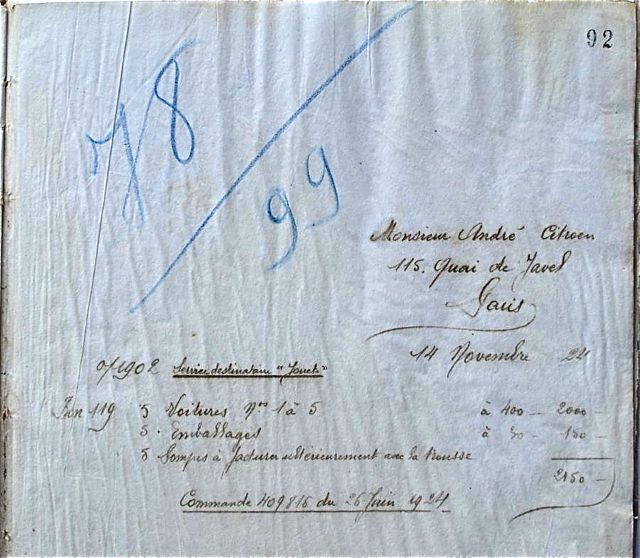 92
78
99
Monsieur André Citroen
115. Quai de Javel
Paris
14 Novembre 24
o/1902 Service destinataire "Jouets"
Bon 119 5 Voitures Nos 1 à 5 à 400 — 2000 —
5 Emballages à 30 — 150 —
5 à facturer ultérieurement avec la Housse
2150 —
Commande 409816 du 26 Juin 1924